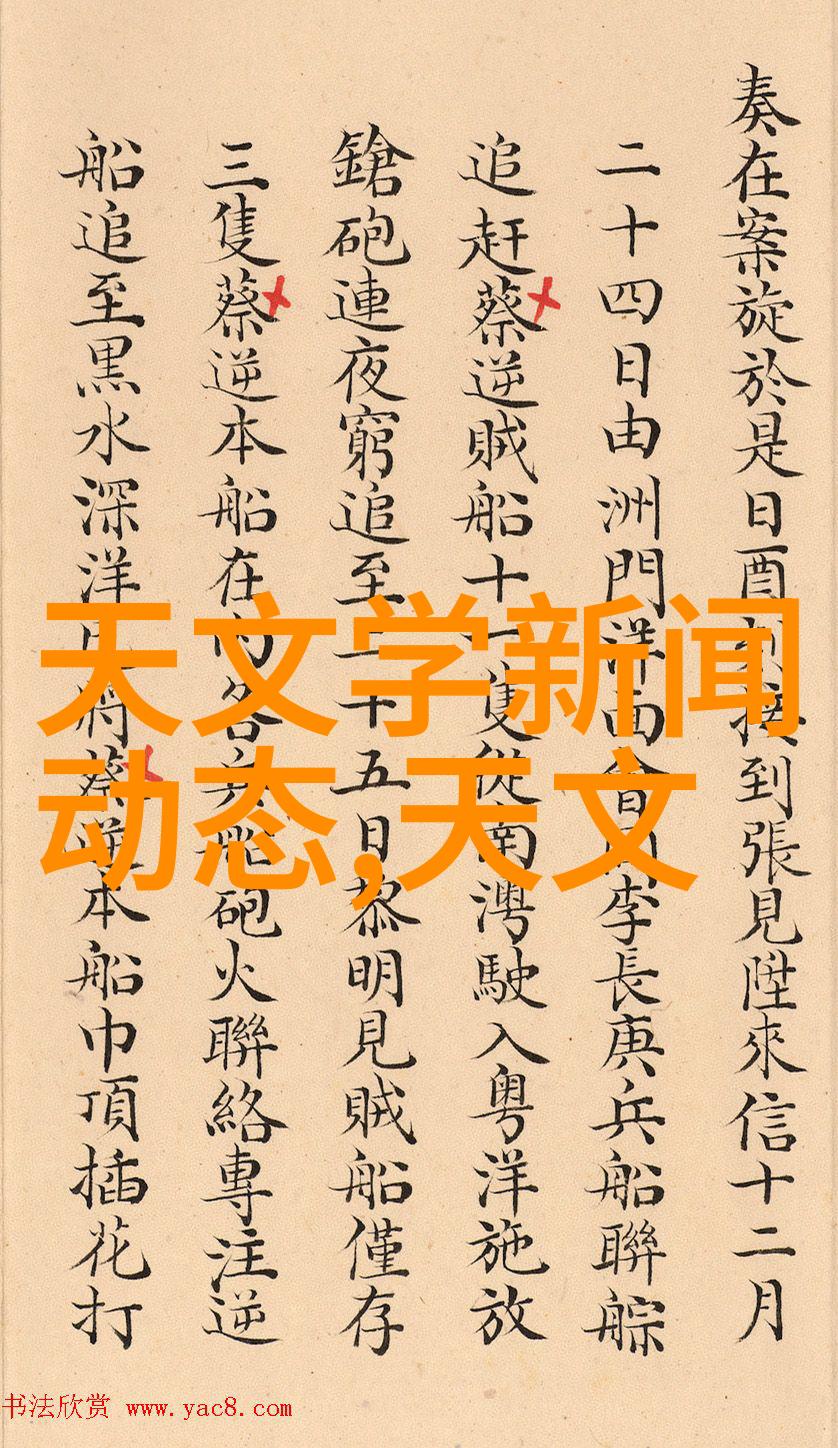 奏在案旋於是日酉刻接到張見陞來信十二月
二十四日由洲門洋面會同李長庚兵船聯䑸
追赶蔡逆賊船十一隻從南灣駛入粤洋施放
鎗砲連夜窮追至二十五日黎明見賊船僅存
三隻蔡逆本船在内各兵船砲火聯絡專注逆
船追至黒水深洋将蔡逆本船巾頂插花打
天文学新闻
动态,天文
书法欣赏 www.yac8.com